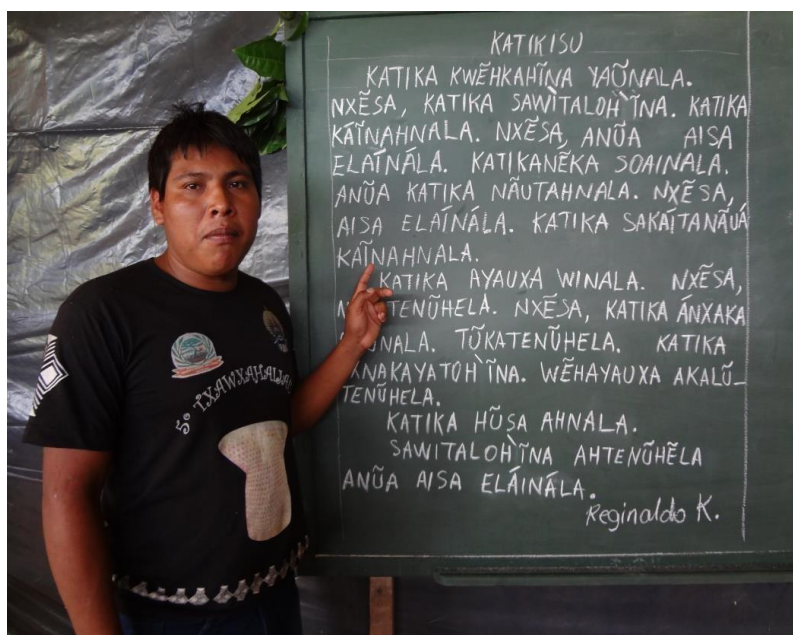 KATIKISU
KATIKA KWẼHKAHĨNA YAŨNALA.
NXẼSA, KATIKA SAWÌTALOH`ĨNA. KATIKA
KAĨNAHNALA. NXẼSA, ANŨA AISA
ELAÍNÁLA. KATIKANẼKA SOAINALA.
ANŨA KATIKA NÃUTAHNALA. NXẼSA,
AISA ELAÍNÁLA. KATIKA SAKAÍTANÃUÁ
KAĨNAHNALA.
KATIKA AYAUXA WINALA. NXẼSA,
NXẼSA, KATIKA ÁNXAKA
TŨKATENŨHELA. KATIKA
WẼHAYAUXA AKALŨ-
TENŨHELA.
KATIKA HŨSA AHNALA.
SAWITALOH`ĨNA AHTENŨHẼLA
ANŨA AISA ELÁINÁLA.
Reginaldo K.
5º